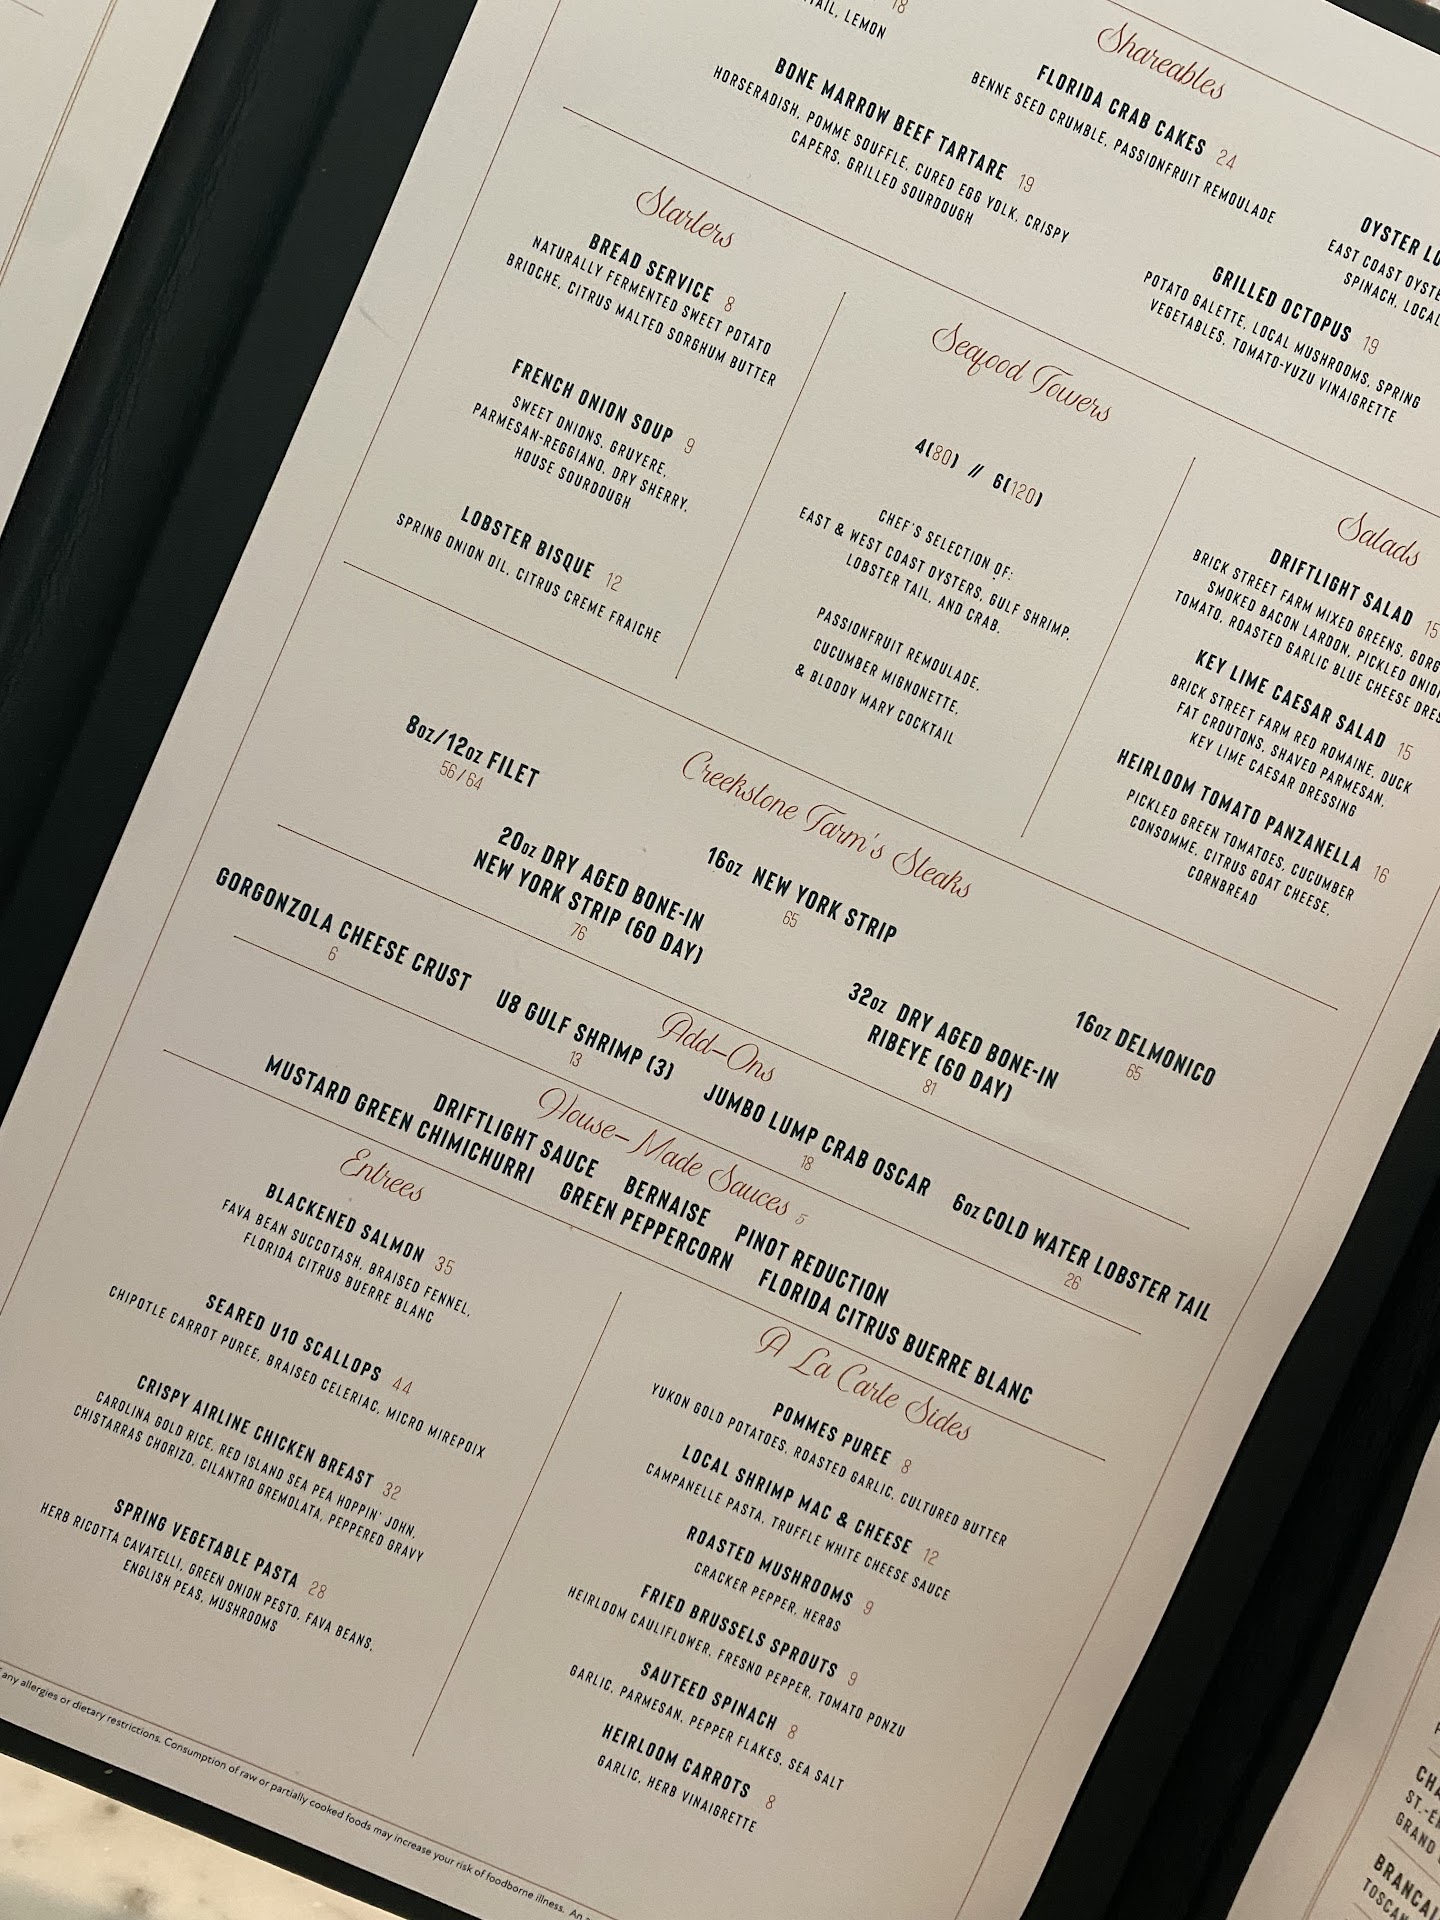 18
TAIL, LEMON
BONE MARROW BEEF TARTARE 19
HORSERADISH, POMME SOUFFLE, CURED EGG YOLK, CRISPY
CAPERS, GRILLED SOURDOUGH
Shareables
FLORIDA CRAB CAKES 24
BENNE SEED CRUMBLE, PASSIONFRUIT REMOULADE
OYSTER
EAST COAST
SPINACH, LOCAL
GRILLED OCTOPUS 19
POTATO GALETTE, LOCAL MUSHROOMS, SPRING
VEGETABLES, TOMATO-YUZU VINAIGRETTE
Starters
BREAD SERVICE 8
NATURALLY FERMENTED SWEET POTATO
BRIOCHE, CITRUS MALTED SORGHUM BUTTER
FRENCH ONION SOUP 9
SWEET ONIONS, GRUYERE,
PARMESAN-REGGIANO, DRY SHERRY,
HOUSE SOURDOUGH
LOBSTER BISQUE 12
SPRING ONION OIL, CITRUS CREME FRAICHE
Seafood Towers
4(80) // 6(120)
CHEF'S SELECTION OF:
EAST & WEST COAST OYSTERS, GULF SHRIMP,
LOBSTER TAIL, AND CRAB.
PASSIONFRUIT REMOULADE,
CUCUMBER MIGNONETTE,
& BLOODY MARY COCKTAIL
Salads
DRIFTLIGHT SALAD 15
BRICK STREET FARM MIXED GREENS,
SMOKED BACON LARDON, PICKLED
TOMATO, ROASTED GARLIC BLUE CHEESE
KEY LIME CAESAR SALAD 15
BRICK STREET FARM RED ROMAINE, DUCK
FAT CROUTONS, SHAVED PARMESAN,
KEY LIME CAESAR DRESSING
HEIRLOOM TOMATO PANZANELLA 16
PICKLED GREEN TOMATOES, CUCUMBER
CONSOMME, CITRUS GOAT CHEESE,
CORNBREAD
Creekstone Farm's Steaks
8oz/12oz FILET
56/64
20oz DRY AGED BONE-IN
NEW YORK STRIP (60 DAY)
76
16oz NEW YORK STRIP
65
32oz DRY AGED BONE-IN
RIBEYE (60 DAY)
81
16oz DELMONICO
65
Add-Ons
GORGONZOLA CHEESE CRUST
6
U8 GULF SHRIMP (3)
13
JUMBO LUMP CRAB OSCAR
18
6oz COLD WATER LOBSTER TAIL
26
House-Made Sauces 5
DRIFTLIGHT SAUCE BERNAISE PINOT REDUCTION
MUSTARD GREEN CHIMICHURRI GREEN PEPPERCORN FLORIDA CITRUS BUERRE BLANC
Entrees
BLACKENED SALMON 35
FAVA BEAN SUCCOTASH, BRAISED FENNEL,
FLORIDA CITRUS BUERRE BLANC
SEARED U10 SCALLOPS 44
CHIPOTLE CARROT PUREE, BRAISED CELERIAC, MICRO MIREPOIX
CRISPY AIRLINE CHICKEN BREAST 32
CAROLINA GOLD RICE, RED ISLAND SEA PEA HOPPIN' JOHN,
CHISTARRAS CHORIZO, CILANTRO GREMOLATA, PEPPERED GRAVY
SPRING VEGETABLE PASTA 28
HERB RICOTTA CAVATELLI, GREEN ONION PESTO, FAVA BEANS,
ENGLISH PEAS, MUSHROOMS
A La Carte Sides
POMMES PUREE 8
YUKON GOLD POTATOES, ROASTED GARLIC, CULTURED BUTTER
LOCAL SHRIMP MAC & CHEESE 12
CAMPANELLE PASTA, TRUFFLE WHITE CHEESE SAUCE
ROASTED MUSHROOMS 9
CRACKER PEPPER, HERBS
FRIED BRUSSELS SPROUTS 9
HEIRLOOM CAULIFLOWER, FRESNO PEPPER, TOMATO PONZU
SAUTEED SPINACH 8
GARLIC, PARMESAN, PEPPER FLAKES, SEA SALT
HEIRLOOM CARROTS 8
GARLIC, HERB VINAIGRETTE
any allergies or dietary restrictions. Consumption of raw or partially cooked foods may increase your risk of foodborne illness. An
GRAND